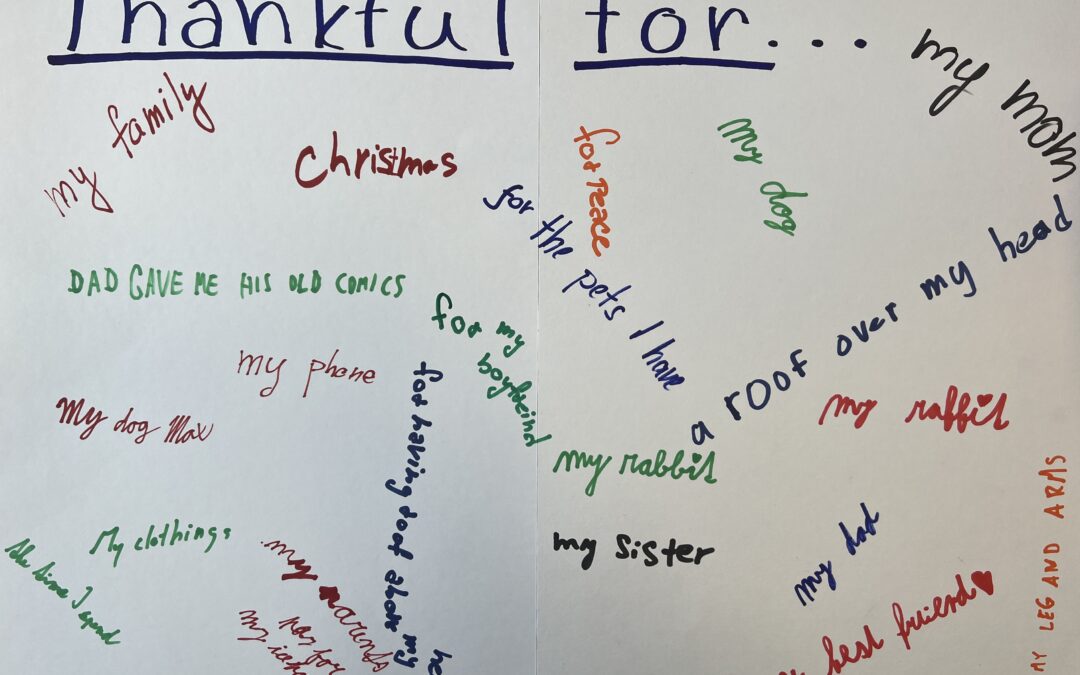 Thankful for...
my family
Christmas
for Peace
my dog
my mom
for the pets I have
DAD GAVE ME HIS OLD COMICS
for my
boyfreind
a roof over my head
my phone
My dog Max
for having roof above my he
my rabbit
my rabbit
My clothings
my sister
my dad
MY LEG AND ARMS
the time I spend
my parents
pay for
my
best friend